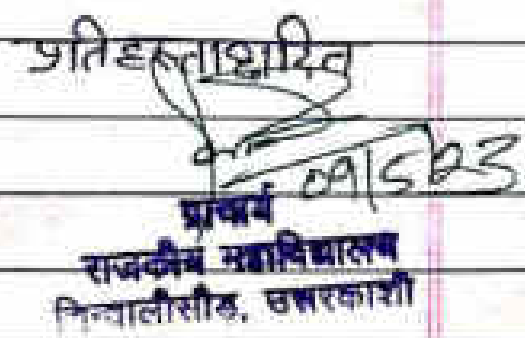 प्रतिहस्ताक्षरित
09/5/23
प्राचार्य
राजकीय महाविद्यालय
चिन्यालीसौड, उत्तरकाशी